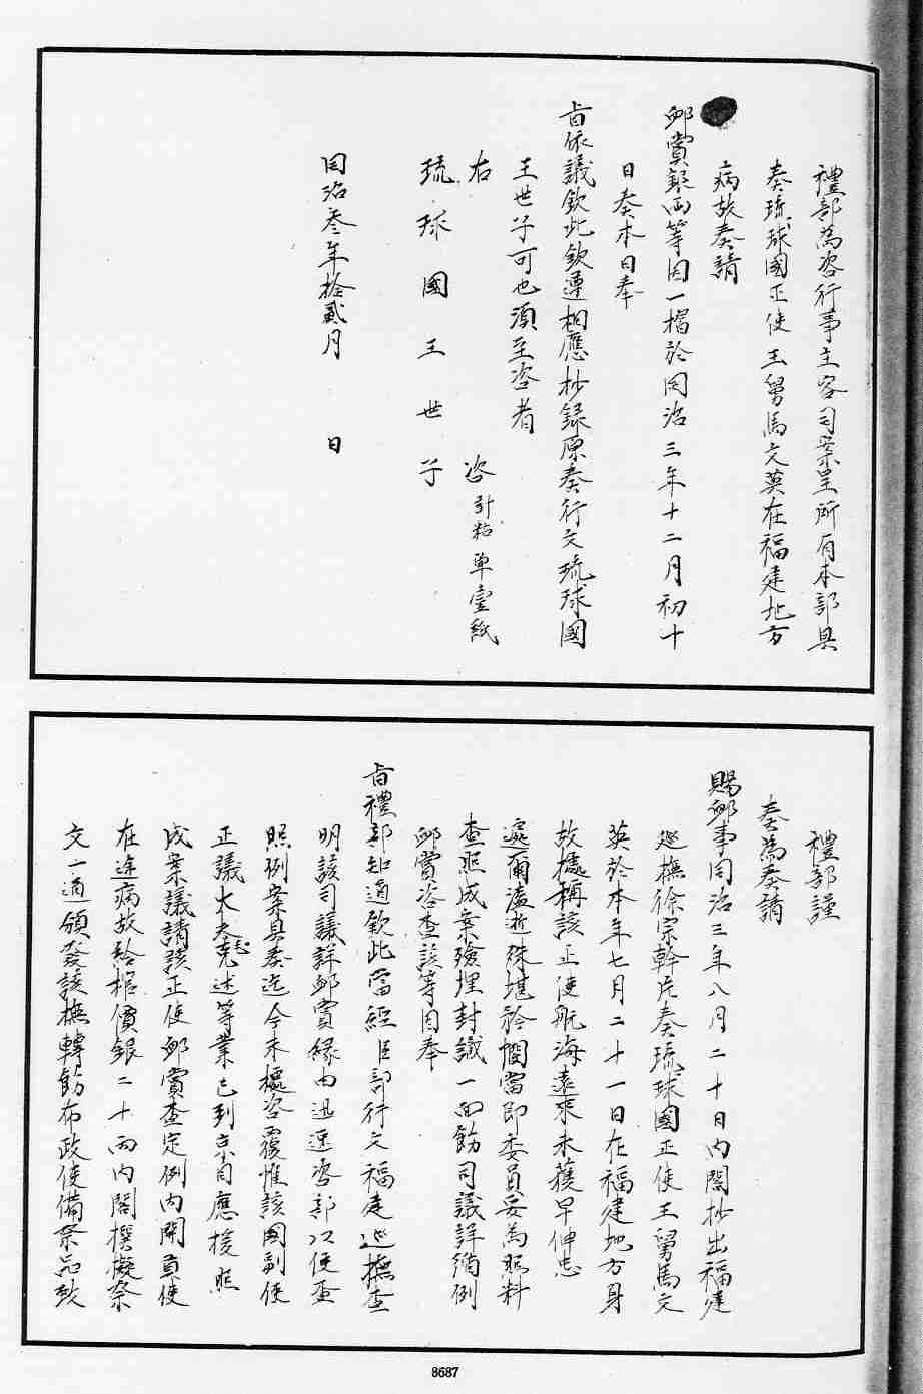 禮部為咨行事主客司案呈所有本部具
奏琉球國正使王舅馬文英在福建地方
病故奏請
卹賞銀兩等因一摺於同治三年十二月初十
日奏本日奉
旨依議欽此欽遵相應抄錄原奏行文琉球國
王世子可也須至咨者
右　咨計粘單壹紙
琉球國王世子
同治叁年拾貳月　日
禮部謹
奏為奏請
賜卹事同治三年八月二十日內閣抄出福建
巡撫徐宗幹片奏琉球國正使王舅馬文
英於本年七月二十一日在福建地方身
故據稱該正使航海遠來未獲早伸忠
悃遽爾溘逝殊堪矜憫當即委員妥為照料
查照成案殮埋封識一面飭司議詳循例
卹賞咨查該等因奉
旨禮部知道欽此當經臣部行文福建巡撫查
明該司議詳卹賞緣由迅速咨部以便查
照例案具奏迄今未據咨覆惟該國副使
正議大夫毛克述等業已到京自應援照
成案議請該正使卹賞查定例內開貢使
在途病故給棺價銀二十兩內閣撰擬祭
文一道頒發該撫轉飭布政使備祭品致
8687